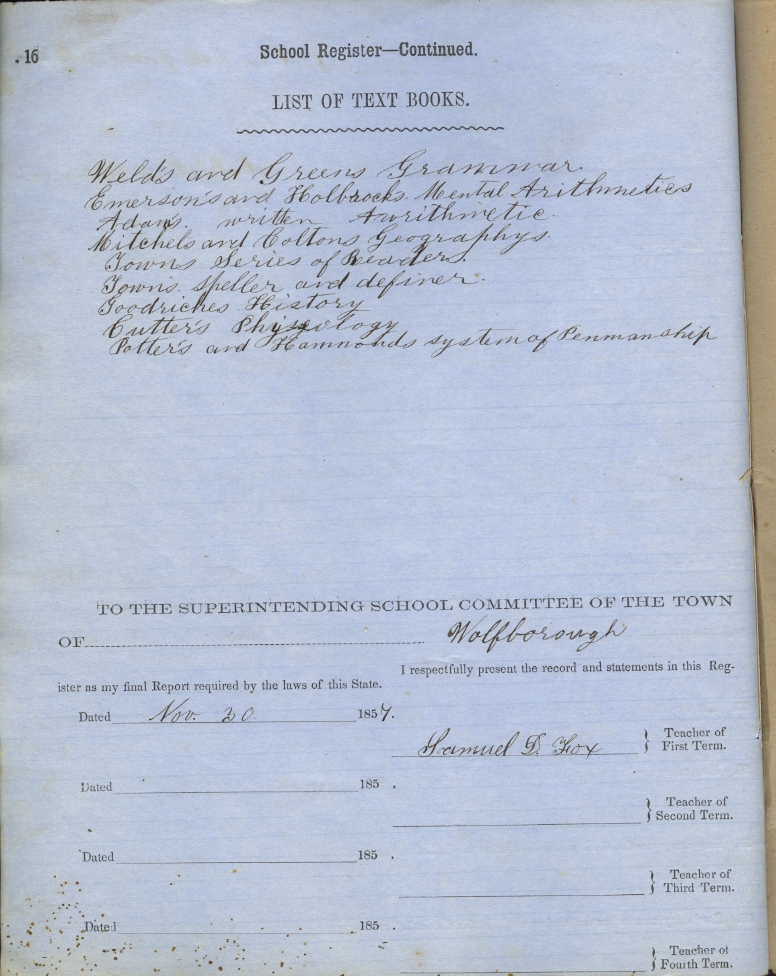 16
School Register—Continued.
LIST OF TEXT BOOKS.
Weld's and Greens Grammar.
Emerson's and Holbrocks Mental Arithmetics
Adam's written Awrithmetic.
Mitchels and Coltons Geographys.
Towns Series of Readers.
Towns. Speller and definer.
Goodriches History
Cutter's Physeology
Potter's and Hammonds system of Penmanship
TO THE SUPERINTENDING SCHOOL COMMITTEE OF THE TOWN
OF Wolfborough
I respectfully present the record and statements in this Reg-
ister as my final Report required by the laws of this State.
Dated Nov. 30 1857.
Samuel D. Fox } Teacher of
First Term.
Dated 185 .
} Teacher of
Second Term.
Dated 185 .
} Teacher of
Third Term.
Dated 185 .
} Teacher of
Fourth Term.